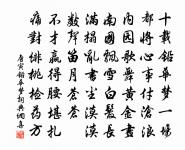 十載鉛華夢一場
都將心事付滄浪
內園歌舞黃金盡
南國飄零白髮長
滿榻亂書塵漠漠
數聲笛月蒼蒼
不才贏得腰堪
對緋桃檢药方
唐寅鉛華夢詞典網書